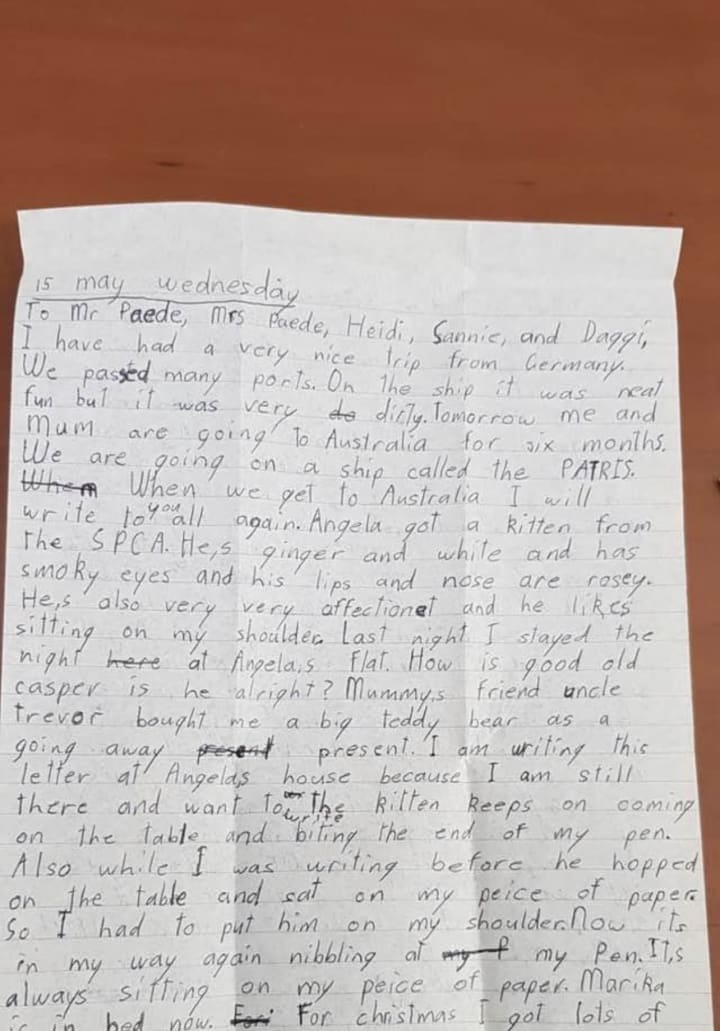 15 may wednesday
To Mr Paede, Mrs Paede, Heidi, Sannie, and Daggi,
I have had a very nice trip from Germany.
We passed many ports. On the ship it was neat
fun but it was very do dirty. Tomorrow me and
Mum are going to Australia for six months.
We are going on a ship called the PATRIS.
When When we get to Australia I will
write to you all again. Angela got a kitten from
the SPCA. He,s ginger and white and has
smoky eyes and his lips and nose are rosey.
He,s also very very affectionet and he likes
sitting on my shoulder. Last night I stayed the
night here at Angela,s flat. How is good old
casper is he alright? Mummy,s friend uncle
trevor bought me a big teddy bear as a
going away present present. I am writing this
letter at Angela,s house because I am still
there and want to write the kitten keeps on coming
on the table and biting the end of my pen.
Also while I was writing before he hopped
on the table and sat on my peice of paper.
So I had to put him on my shoulder. Now its
in my way again nibbling at my my Pen. It,s
always sitting on my peice of paper. Marika
is in bed now. For For christmas I got lots of